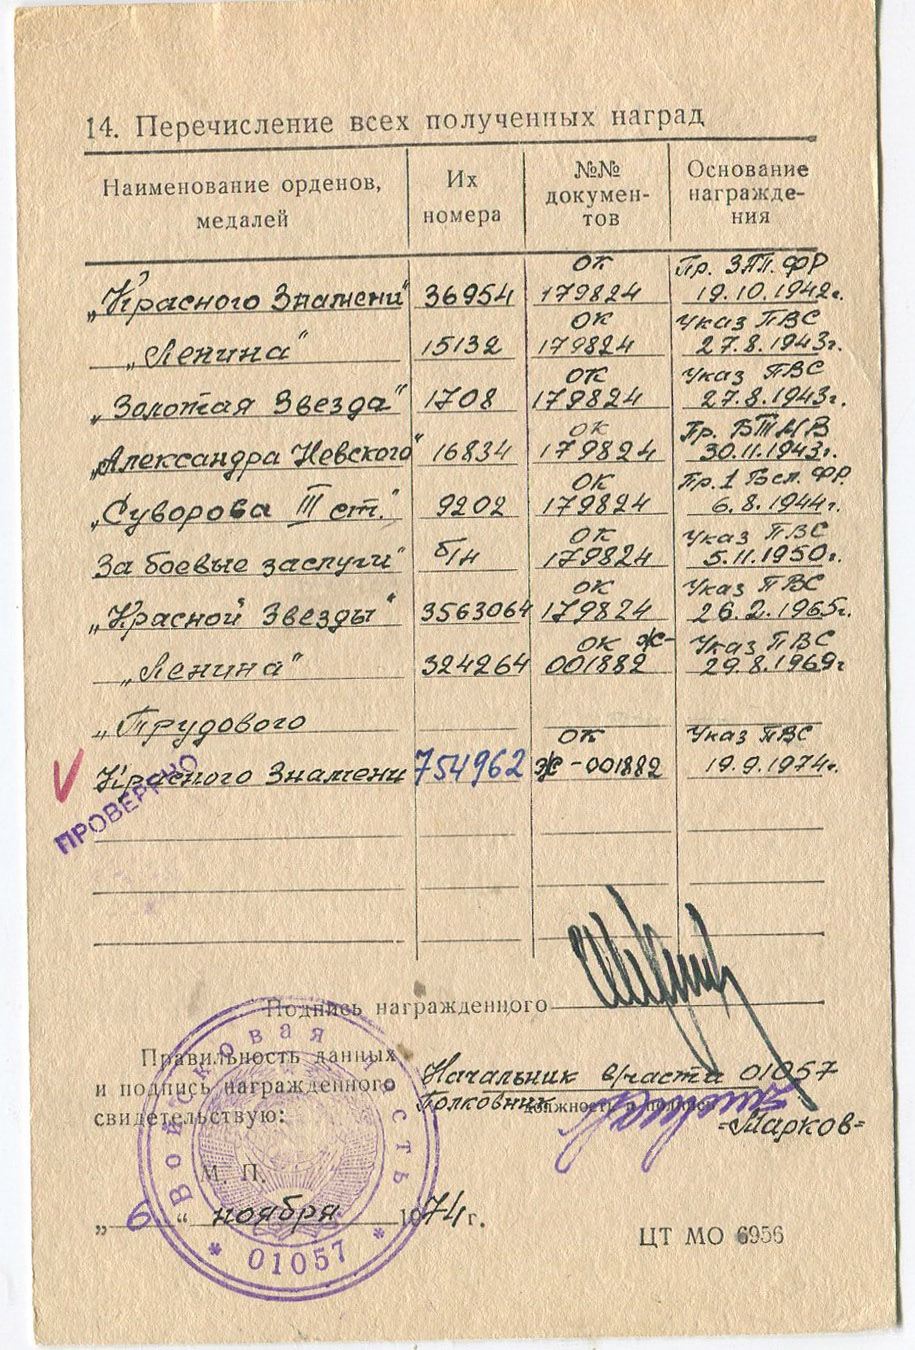 14. Перечисление всех полученных наград
Наименование орденов, медалей | Их номера | №№ докумен-тов | Основание награжде-ния
ОК Пр. ЗАП. ФР
„Красного Знамени" 36954 179824 19.10.1942г.
ОК Указ ПВС
„Ленина" 15132 179824 27.8.1943г.
ОК Указ ПВС
„Золотая Звезда" 1708 179824 27.8.1943г.
ОК Пр. БТ МВ
„Александра Невского" 16834 179824 30.11.1943г.
ОК Пр. 1 Бел. ФР
„Суворова III ст." 9202 179824 6.8.1944г.
ОК Указ ПВС
За боевые заслуги" б/н 179824 5.11.1950г.
ОК Указ ПВС
„Красной Звезды" 3563064 179824 26.2.1965г.
ОК Ж- Указ ПВС
„Ленина" 324264 001882 29.8.1969г
„Трудового
ОК Указ ПВС
Красного Знамени 754962 Ж-001882 19.9.1974г.
ПРОВЕРЕНО
Подпись награжденного
Правильность данных
и подпись награжденного
свидетельствую:
Начальник в/части 01057
Полковник
должность и подпись
=Марков=
М. П.
„6" ноября 1974г.
Войсковая часть
* 01057 *
ЦТ МО 6956